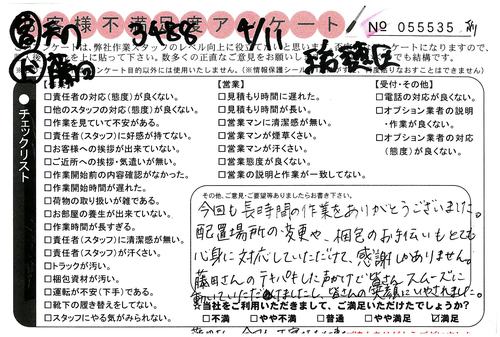 お客様不満足度アンケート
№ 055535
3488 4/11
ンケートは、弊社作業スタッフのレベル向上に役立て
を上に貼って下さい。数多くの正直なご意見をお願い
ケート目的以外には使用いたしません。(※情報保護シール
チェックリスト
【作業】
□責任者の対応(態度)が良くない。
□他のスタッフの対応(態度)が良くない。
□作業を見ていて不安がある。
□責任者(スタッフ)に好感が持てない。
□お客様への挨拶が出来ていない。
□ご近所への挨拶・気遣いが無い。
□作業開始前の内容確認がなかった。
□作業開始時間が遅れた。
□荷物の取り扱いが雑である。
□お部屋の養生が出来ていない。
□作業時間が長すぎる。
□責任者(スタッフ)に清潔感が無い。
□責任者(スタッフ)が汗くさい。
□トラックが汚い。
□梱包資材が汚い。
□運転が不安(下手)である。
□靴下の履き替えをしてない。
□スタッフにやる気がみられない。
【営業】
□見積もり時間に遅れた。
□見積もり時間が長い。
□営業マンに清潔感が無い。
□営業マンが煙草くさい。
□営業マンが汗くさい。
□営業態度が良くない。
□営業の説明と作業が一致してない。
【受付・その他】
□電話の対応が良くない。
□オプション業者の説明
・作業が良くない。
□オプション業者の対応
(態度)が良くない。
その他、ご意見・ご要望等ありましたらお書き下さい。
今回も長時間の作業をありがとうございました。
配置場所の変更や、梱包のお手伝いもとても
心身に対応していただけて、感謝しかありません。
藤田さんのテキパキした声かけで皆さんスムーズに
動いていただけてましたし、皆さんの笑顔にいやされました。
★当社をご利用いただきまして、ご満足いただけたでしょうか?
□不満 □やや不満 □普通 □やや満足 ☑満足